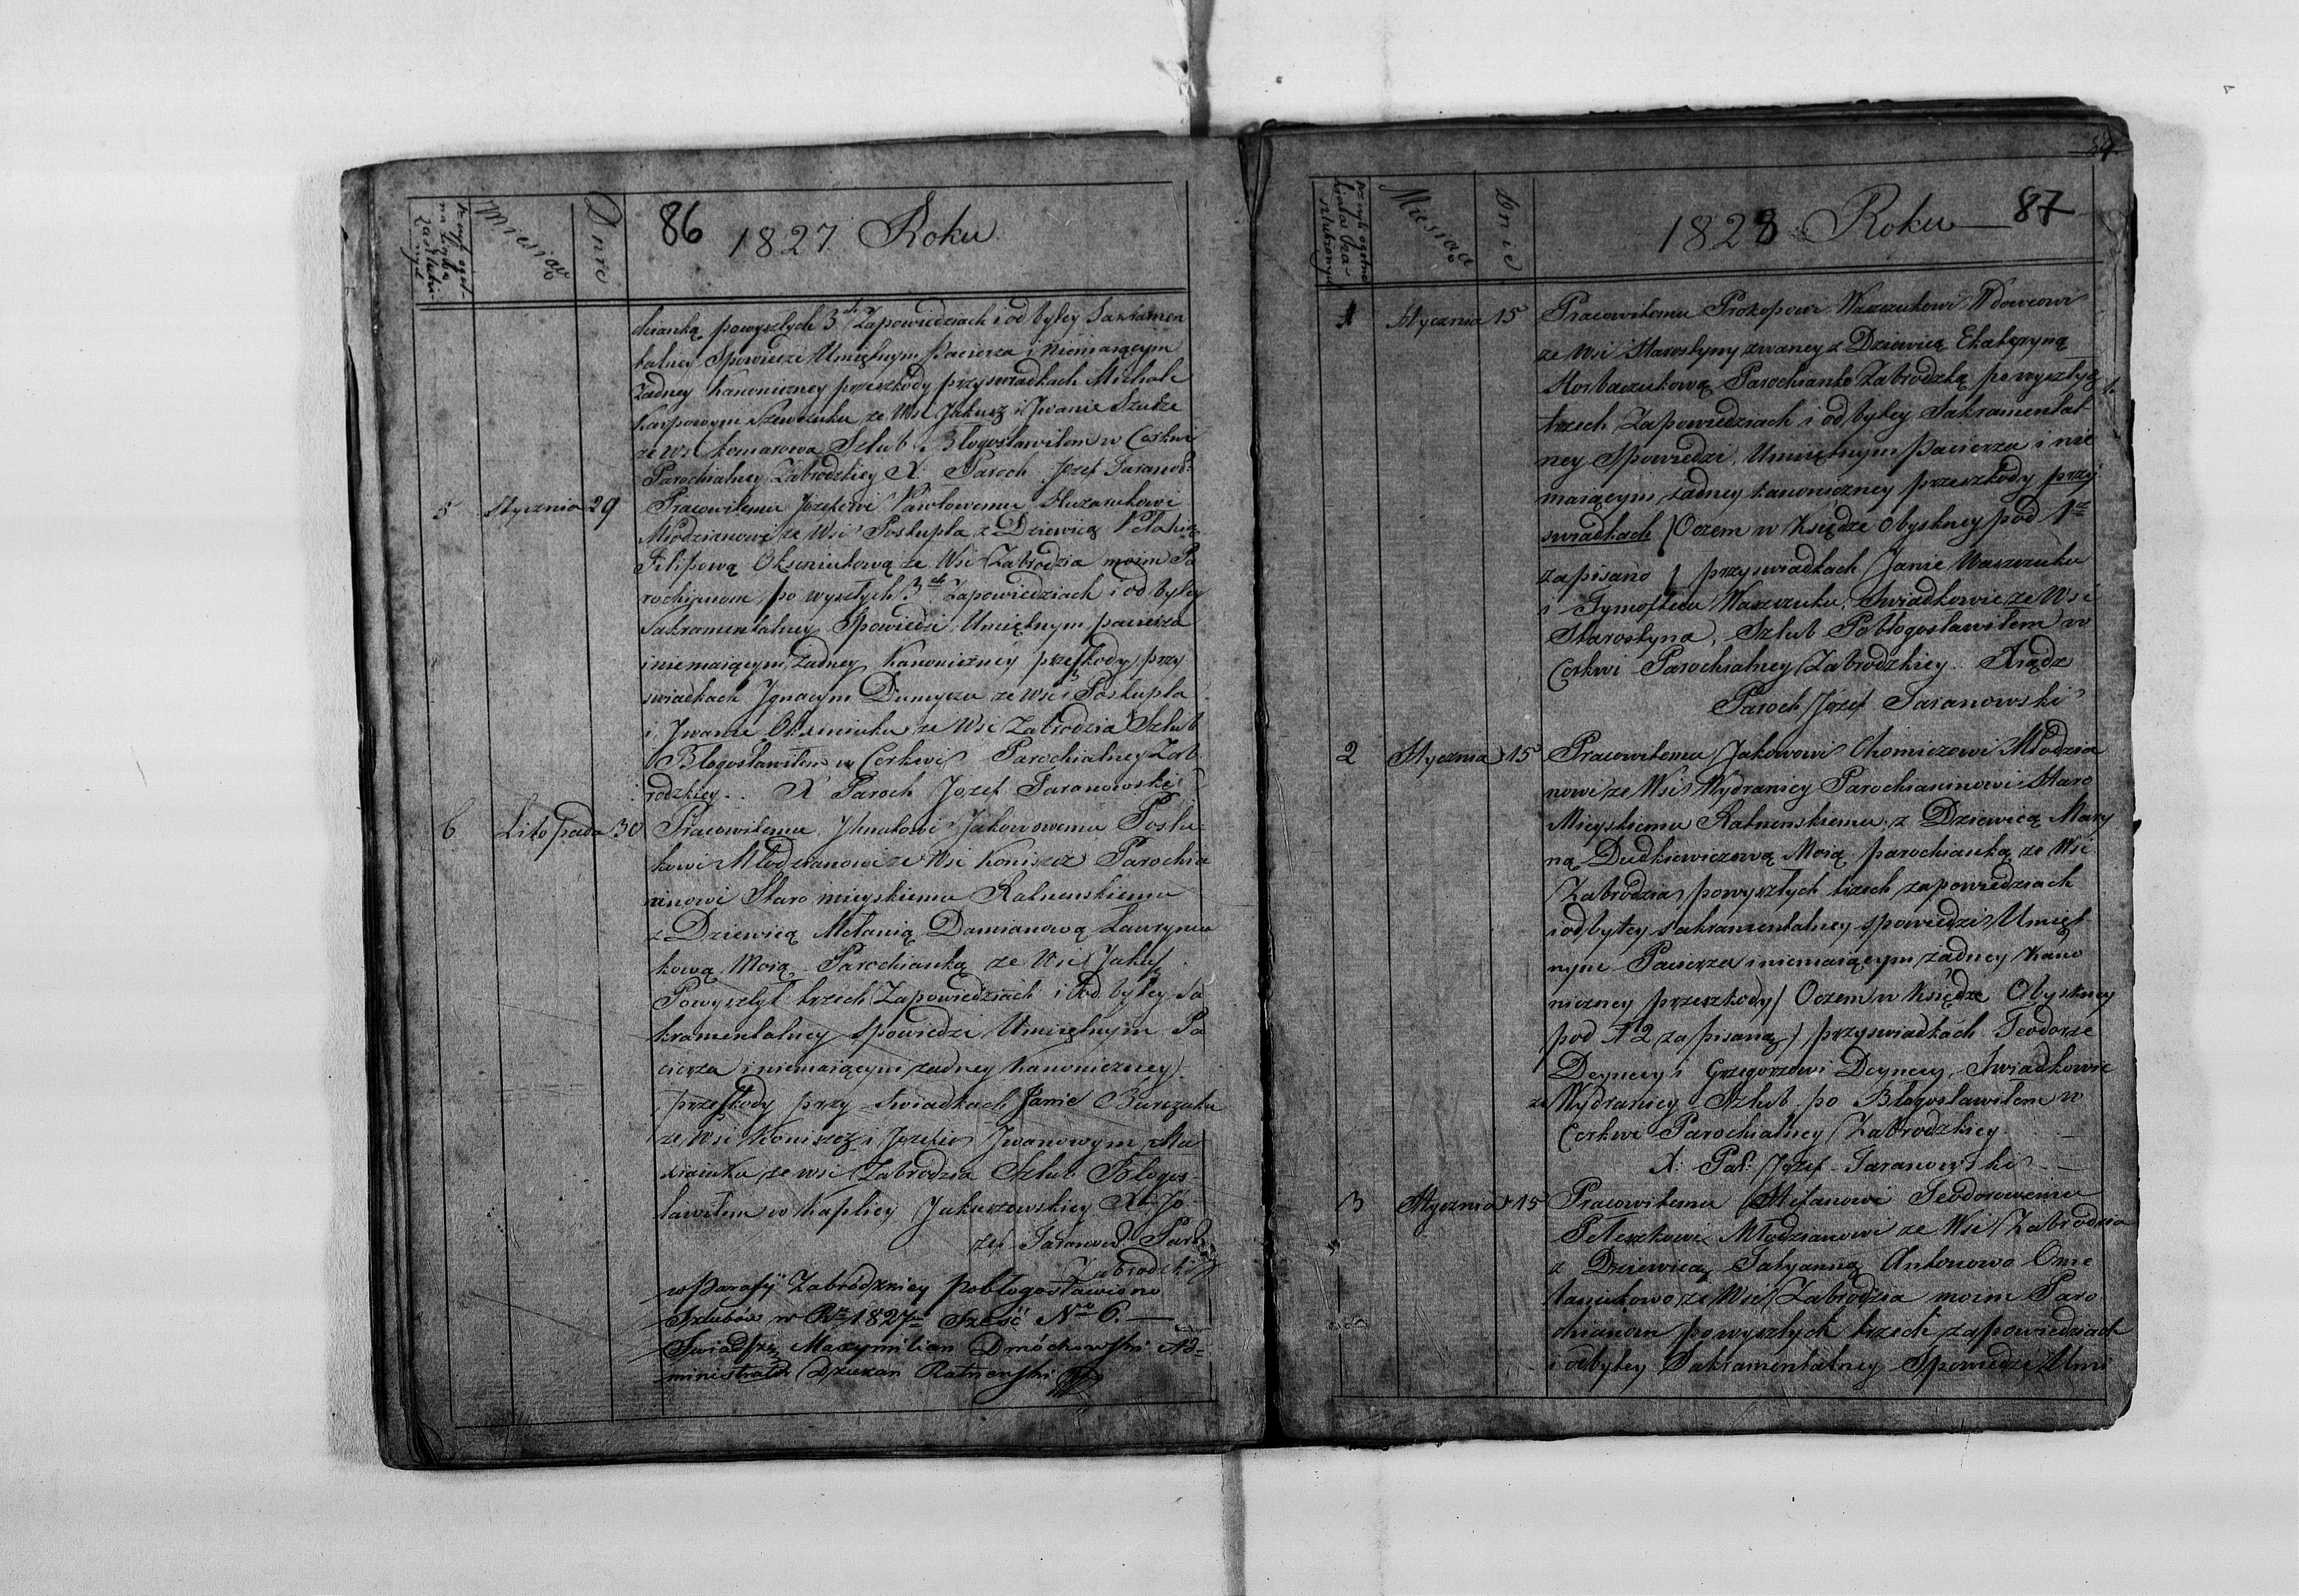 86
1827. Roku
Miesiąc
Dnie
chianką powyszłych 3ch Zapowiedziach i od byłey Sakramen
talney Spowiedzi Umiętnym Pacierza i Niemaiącym
Żadney Kanoniczney przeszkody przyswiadkach Michale
Karpowym Szewczuku ze Wsi Jakusz i Jwanie Szudze
ze Wsi Komarowa Szlub Błogosławiłem w Cerkwi
Parochialney Zabrodzkiey X. Paroch Jozef Taranow:
5 Stycznia 29 Pracowitemu Jozefowi Pawłowemu
Młodzianowi ze Wsi Postupla z Dziewicą
Filipową Oksiniukową ze Wsi Zabrodzia moim Pa
rochianom, po wyszłych 3ch Zapowiedziach i od byłey
Sakramentalney Spowiedzi Umiętnym pacierza
i niemaiącym, Żadney Kanoniczney przeszkody, przy
swiadkach Jgnacym Dumyczu ze Wsi Postupla
i Jwanie Oksiniuku ze Wsi Zabrodzia Szlub
Błogosławiłem w Cerkwi Parochialney Zab
rodzkiey. X Paroch Jozef Taranowski
6 Listopada 30 Pracowitemu Jhnatowi Jakowowemu Postu
kowi Młodzianowi ze Wsi Koniszcz Parochia
ninowi Staro mieyskiemu Ratnenskiemu
z Dziewicą Melanią Damianową Ławryniu
kową Moią Parochianką ze Wsi Jakusz
Powyszłych trzech Zapowiedziach i Od byłey Sa
kramentalney spowiedzi Umiętnym Pa
cierza i niemaiącym żadney Kanoniczney
przeszkody przy swiadkach Janie Burczaku
ze Wsi Koniszcz i Jozefie Jwanowym
ze wsi Zabrodzia Szlub Błogos
ławiłem w Kaplicy Jakuszowskiey X. Jo
zef Taranow: Par:
Zabrodzki
w Parafij Zabródzkiey pobłogosławiono
Szlubów w R. 1827 Szesć No 6.
Swiadczę Maxymilian Dmóchowski Ad=
ministrator Dziekan Ratnenski
87
1828 Roku
Miesiąc
Dnie
1 Stycznia 15 Pracowitemu Prokopowi Waszczukowi Wdowcowi
ze Wsi Starostyny zwaney z Dziewicą Ekateryną
Horbaczukową Parochianko Zabrodzką po wyszłych
trzech Zapowiedziach i od byłey Sakramental
ney Spowiedzi, Umiętnym Pacierza i nie
maiącym żadney kanoniczney przeszkody przy
swiadkach (Oczem w Księdze Obyskney pod 1
zapisano) przyswiadkach Janie Waszczuku
i Tymofteiu Waszczuku, Swiadkowie ze Wsi
Starostyna, Szlub Pobłogosławiłem w
Cerkwi Parochialney Zabrodzkiey. Xiądz
Paroch Józef Taranowski
2 Stycznia 15 Pracowitemu Jakowowi Chomiczowi Młodzia
nowi ze Wsi Wydranicy Parochianinowi Staro
Mieyskiemu Ratnenskiemu z Dziewicą Mary
ną Dudkiewiczową Moią parochianką ze Wsi
Zabrodzia powyszłych trzech zapowiedziach
i od byłey sakramentalney spowiedzi Umięt
nym Pacierza i niemaiącym żadney Kano
niczney przeszkody (Oczem w Księdze Obyskney
pod N 2 zapisano) przyswiadkach Teodorze
Deynecy i Grzegorzowi Deynecy, Swiadkowie
ze Wydranicy Szlub po Błogosławiłem w
Cerkwi Parochialney Zabrodzkiey.
X: Par: Jozef Taranowski
3 Stycznia 15 Pracowitemu Stefanowi Teodorowemu
Peteszkowi Młodzianowi ze Wsi Zabrodzia
z Dziewicą Tatyanną Antonowo Ome
laniukowo ze Wsi Zabrodzia moim Paro
chianom powyszłych trzech zapowiedziach
i odbyłey Sakramentalney Spowiedzi Umi